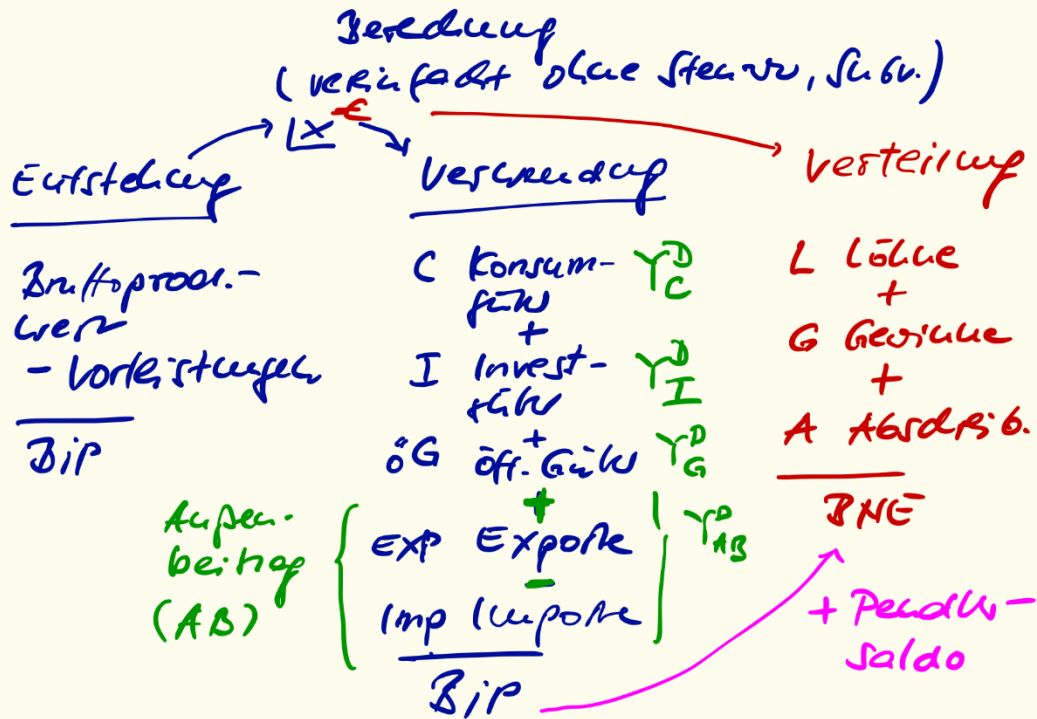 Berechnung
(vereinfacht ohne Steuern, Subv.)
€
Entstehung
Bruttoprod.-
wert
- Vorleistungen
BiP
Verwendung
C Konsum- Y D C
güter
+
I Invest- Y D I
güter
+
öG öff. Güter Y D G
+
Außen-
beitrag
(AB)
Exp Exporte Y D AB
-
Imp Importe
BiP
Verteilung
L Löhne
+
G Gewinne
+
A Abschreib.
BNE
+ Pendler-
saldo